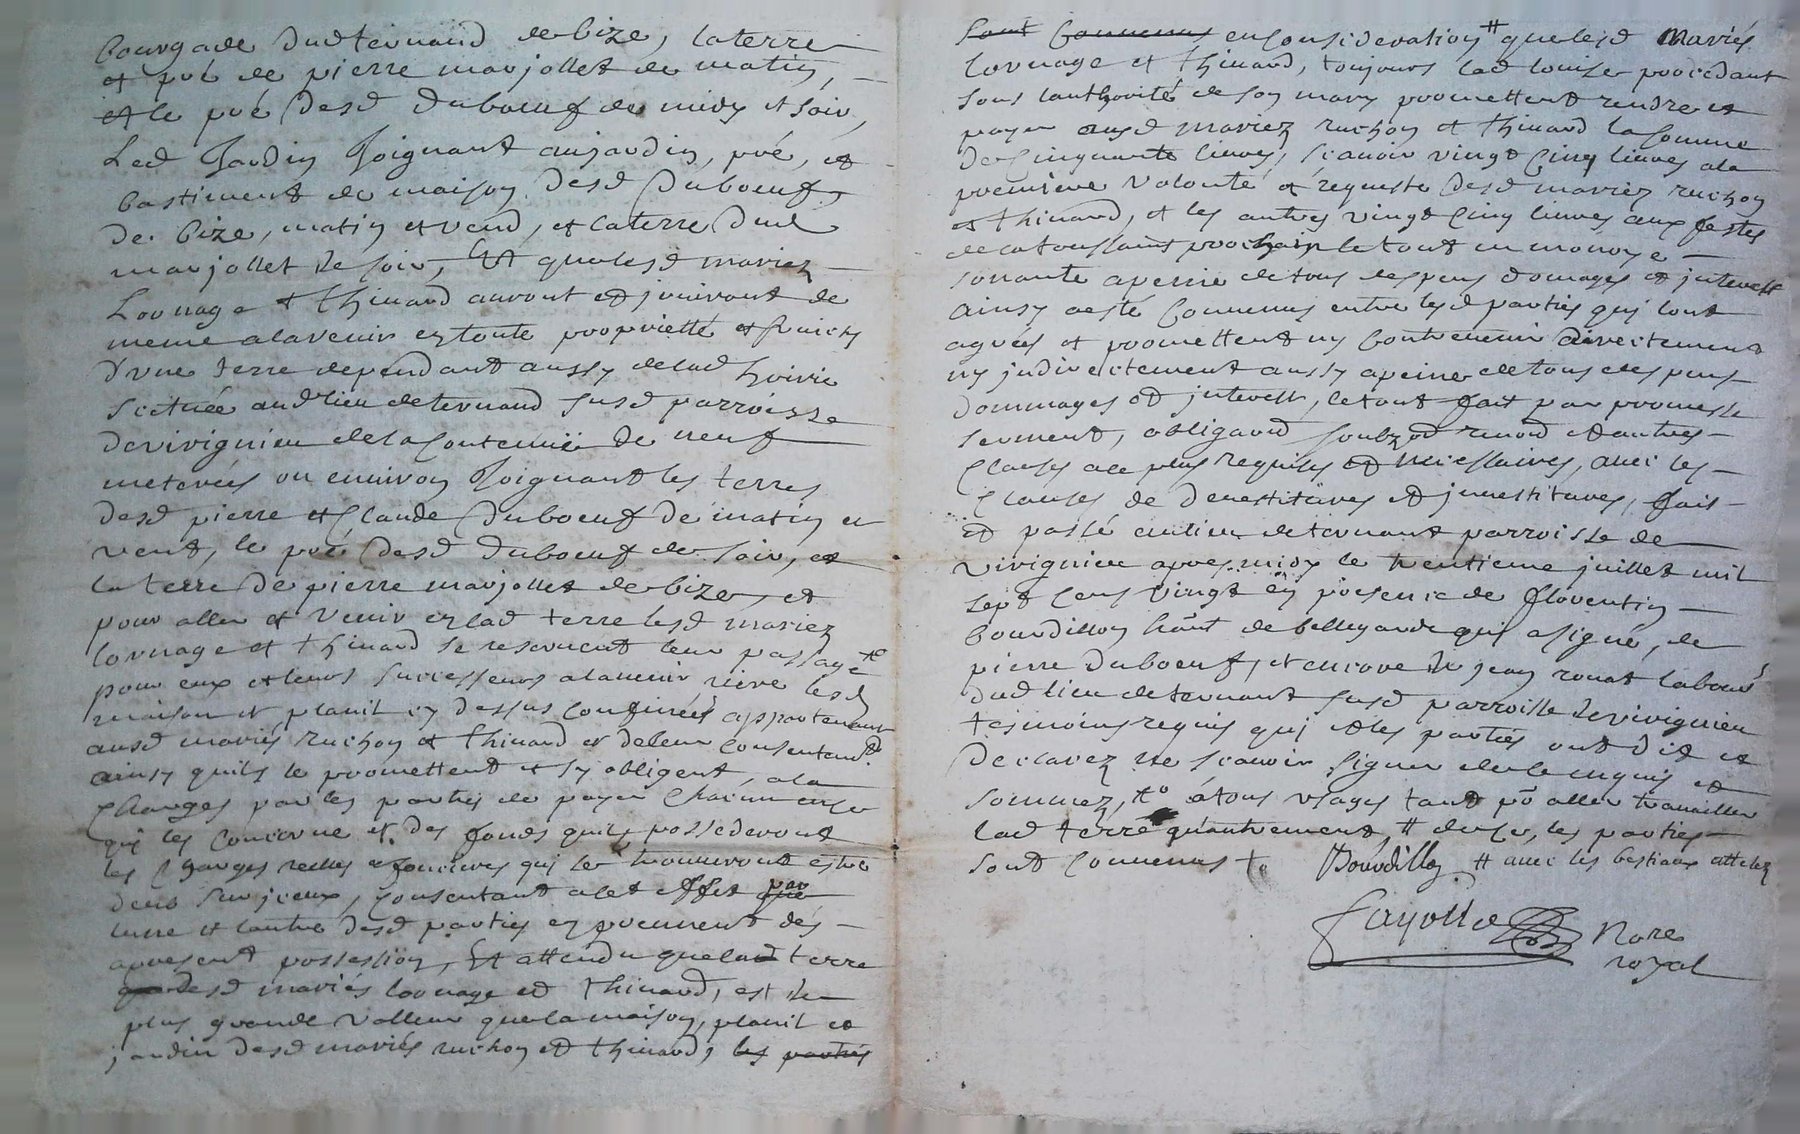 bourgade dud ternand de bize, la terre
et pré de pierre marjollet de matin,
et le pré desd duboeuf de midy et soir,
Led Jardin Joignant au jardin, pré, et
bastiment de maison desd Duboeuf
de bize, matin et vend, et la terre dud
marjollet de soir, Et que lesd mariez
Lornage et thinard auront et jouiront de
meme a lavenir en toute proprietté et fruicts
d'une terre dependant aussy de lad hoirie
scituée aud lieu de ternand susd parroisse
de vivignieu de la contenüe de neuf
meterées ou environ Joignant les terres
desd pierre et Claude Duboeuf de matin et
vent, le pré desd Duboeuf de soir, et
la terre de pierre marjollet de bize, et
pour aller et venir en lad terre lesd mariez
lornage et thinard se reservent leur passage
pour eux et leurs successeurs a lavenir rière lesd
maison et planil cy dessus confinées appartenant
ausd mariés ruchon et thinard et de leur consentant
ainsy quils le promettent et sy obligent, a la
Charges par les parties de payer chacun en ce
qui les concerne et des fonds quils possederont
les charges reelles et foncieres qui se trouveront estre
deus sur iceux, consentant a cet effet que par
lune et lautre desd parties en prennent dés
apresent possession, Et attendu que lad terre
que desd mariés lornage et thinard, est de
plus grande valleur que la maison, planil et
jardin desd mariés ruchon et thinard, les parties
sont Convenus en consideration # que lesd mariés
lornage et thinard, toujours lad louise procedant
sous lauthorité de son mary promettent rendre et
payer ausd mariez ruchon et thinard la somme
de Cinquante livres, scavoir vingt cinq livres a la
premiere volonté et requeste desd mariez ruchon
et thinard, et les autres vingt cinq livres aux festes
de la toussaint prochain le tout en monoye
sonante a peine de tous despens domages et interest
Ainsy a esté Convenus entre lesd parties qui lont
agréés et promettent ny Contrevenir directement
ny indirectement aussy a peine de tous despens
dommages et interest, le tout fait par promesse
serment, obligaond soubzod renond et autres
Clauses a ce plus requises et necessaires, avec les
Clauses de devestitures et investitures, fait
et passé au lieu de ternant parroisse de
vivignieu apres midy le trentieme juillet mil
sept Cens vingt en presence de floventin
bourdillon hãnt de bellegarde qui a signé, de
pierre duboeuf, et encore de jean ronat labour
dud lieu de ternant susd parroisse de vivignieu
tesmoins requis qui et les parties ont dit et
declarez ne scavoir signer de ce enquis et
sommez, to a tous usages tant po aller travailler
lad terre qu'autrement, # de ce, les parties
sont Convenus to Bourdillon # avec les bestiaux attelez
fayolle Nore
royal